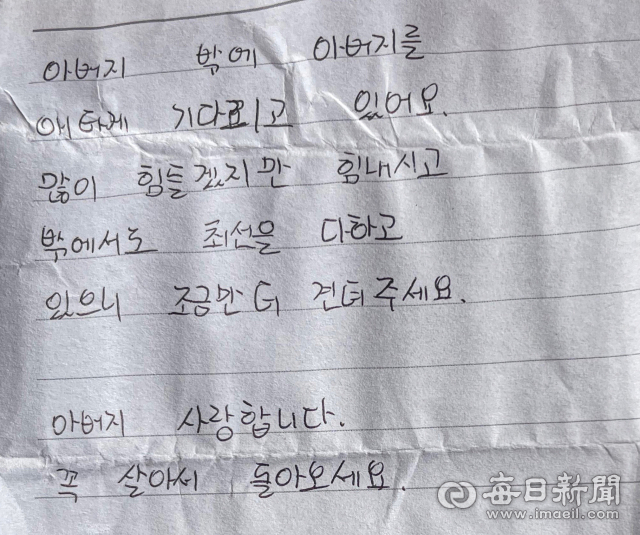 아버지 밖에 아버지를
애타게 기다리고 있어요.
많이 힘들겠지만 힘내시고
밖에서도 최선을 다하고
있으니 조금만 더 견뎌주세요.
아버지 사랑합니다.
꼭 살아서 돌아오세요.
매일신문
www.imaeil.com